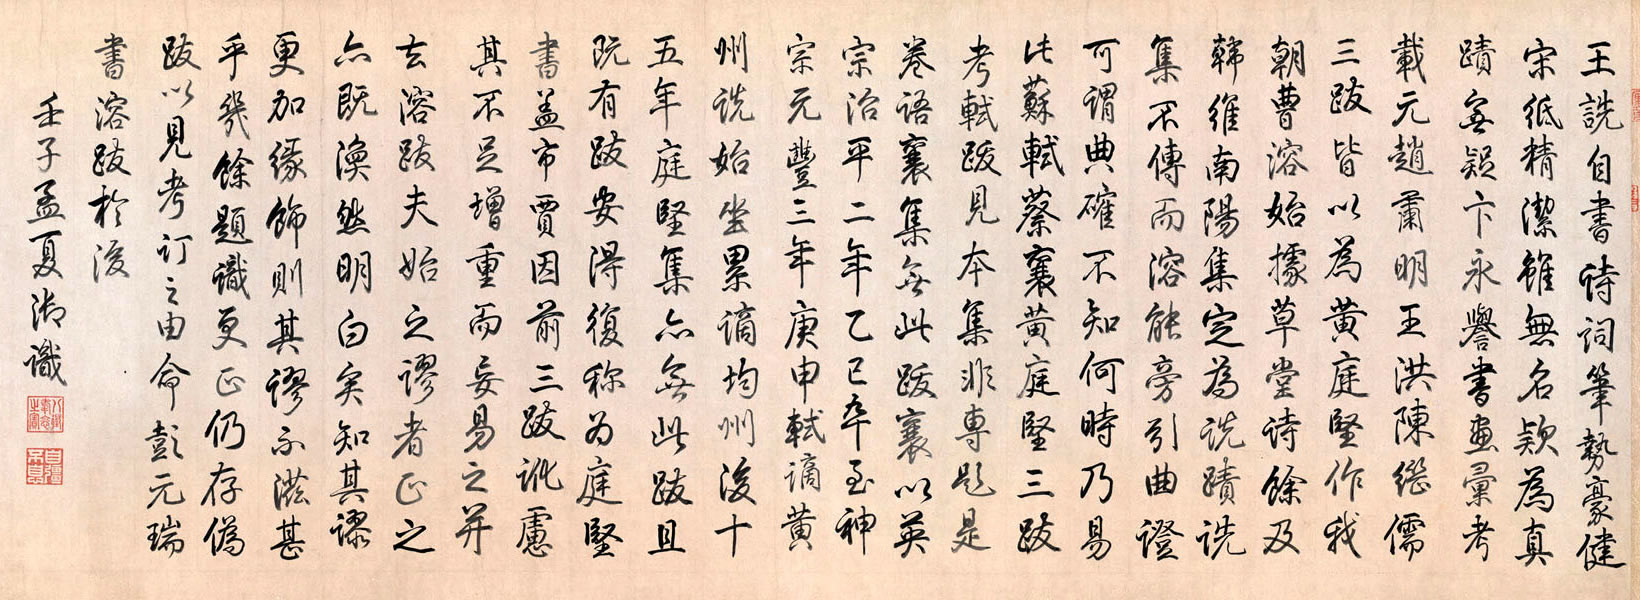 王詵自書詩詞筆勢豪健
宋紙精潔雖無名款為真
蹟無疑卞永譽書畫彙考
載元趙肅明王洪陳繼儒
三跋皆以為黃庭堅作我
朝曹溶始據草堂詩餘及
韓維南陽集定為詵蹟詵
集不傳而溶能旁引曲證
可謂典確不知何時乃易
此蘇軾蔡襄黃庭堅三跋
考軾跋見本集非專題是
卷語襄集無此跋襄以英
宗治平二年乙巳卒至神
宗元豐三年庚申軾謫黃
州詵始坐累謫均州後十
五年庭堅集亦無此跋且
既有跋安得復稱為庭堅
書盖市賈因前三跋訛處
其不足增重而妄易之并
去溶跋夫始之謬者正之
亦既渙然明白矣知其謬
更加緣飾則其謬不滋甚
乎幾餘題識更正仍存偽
跋以見考訂之由命彭元瑞
書溶跋於後
壬子孟夏御識
八徵耄念之寶
自彊不息